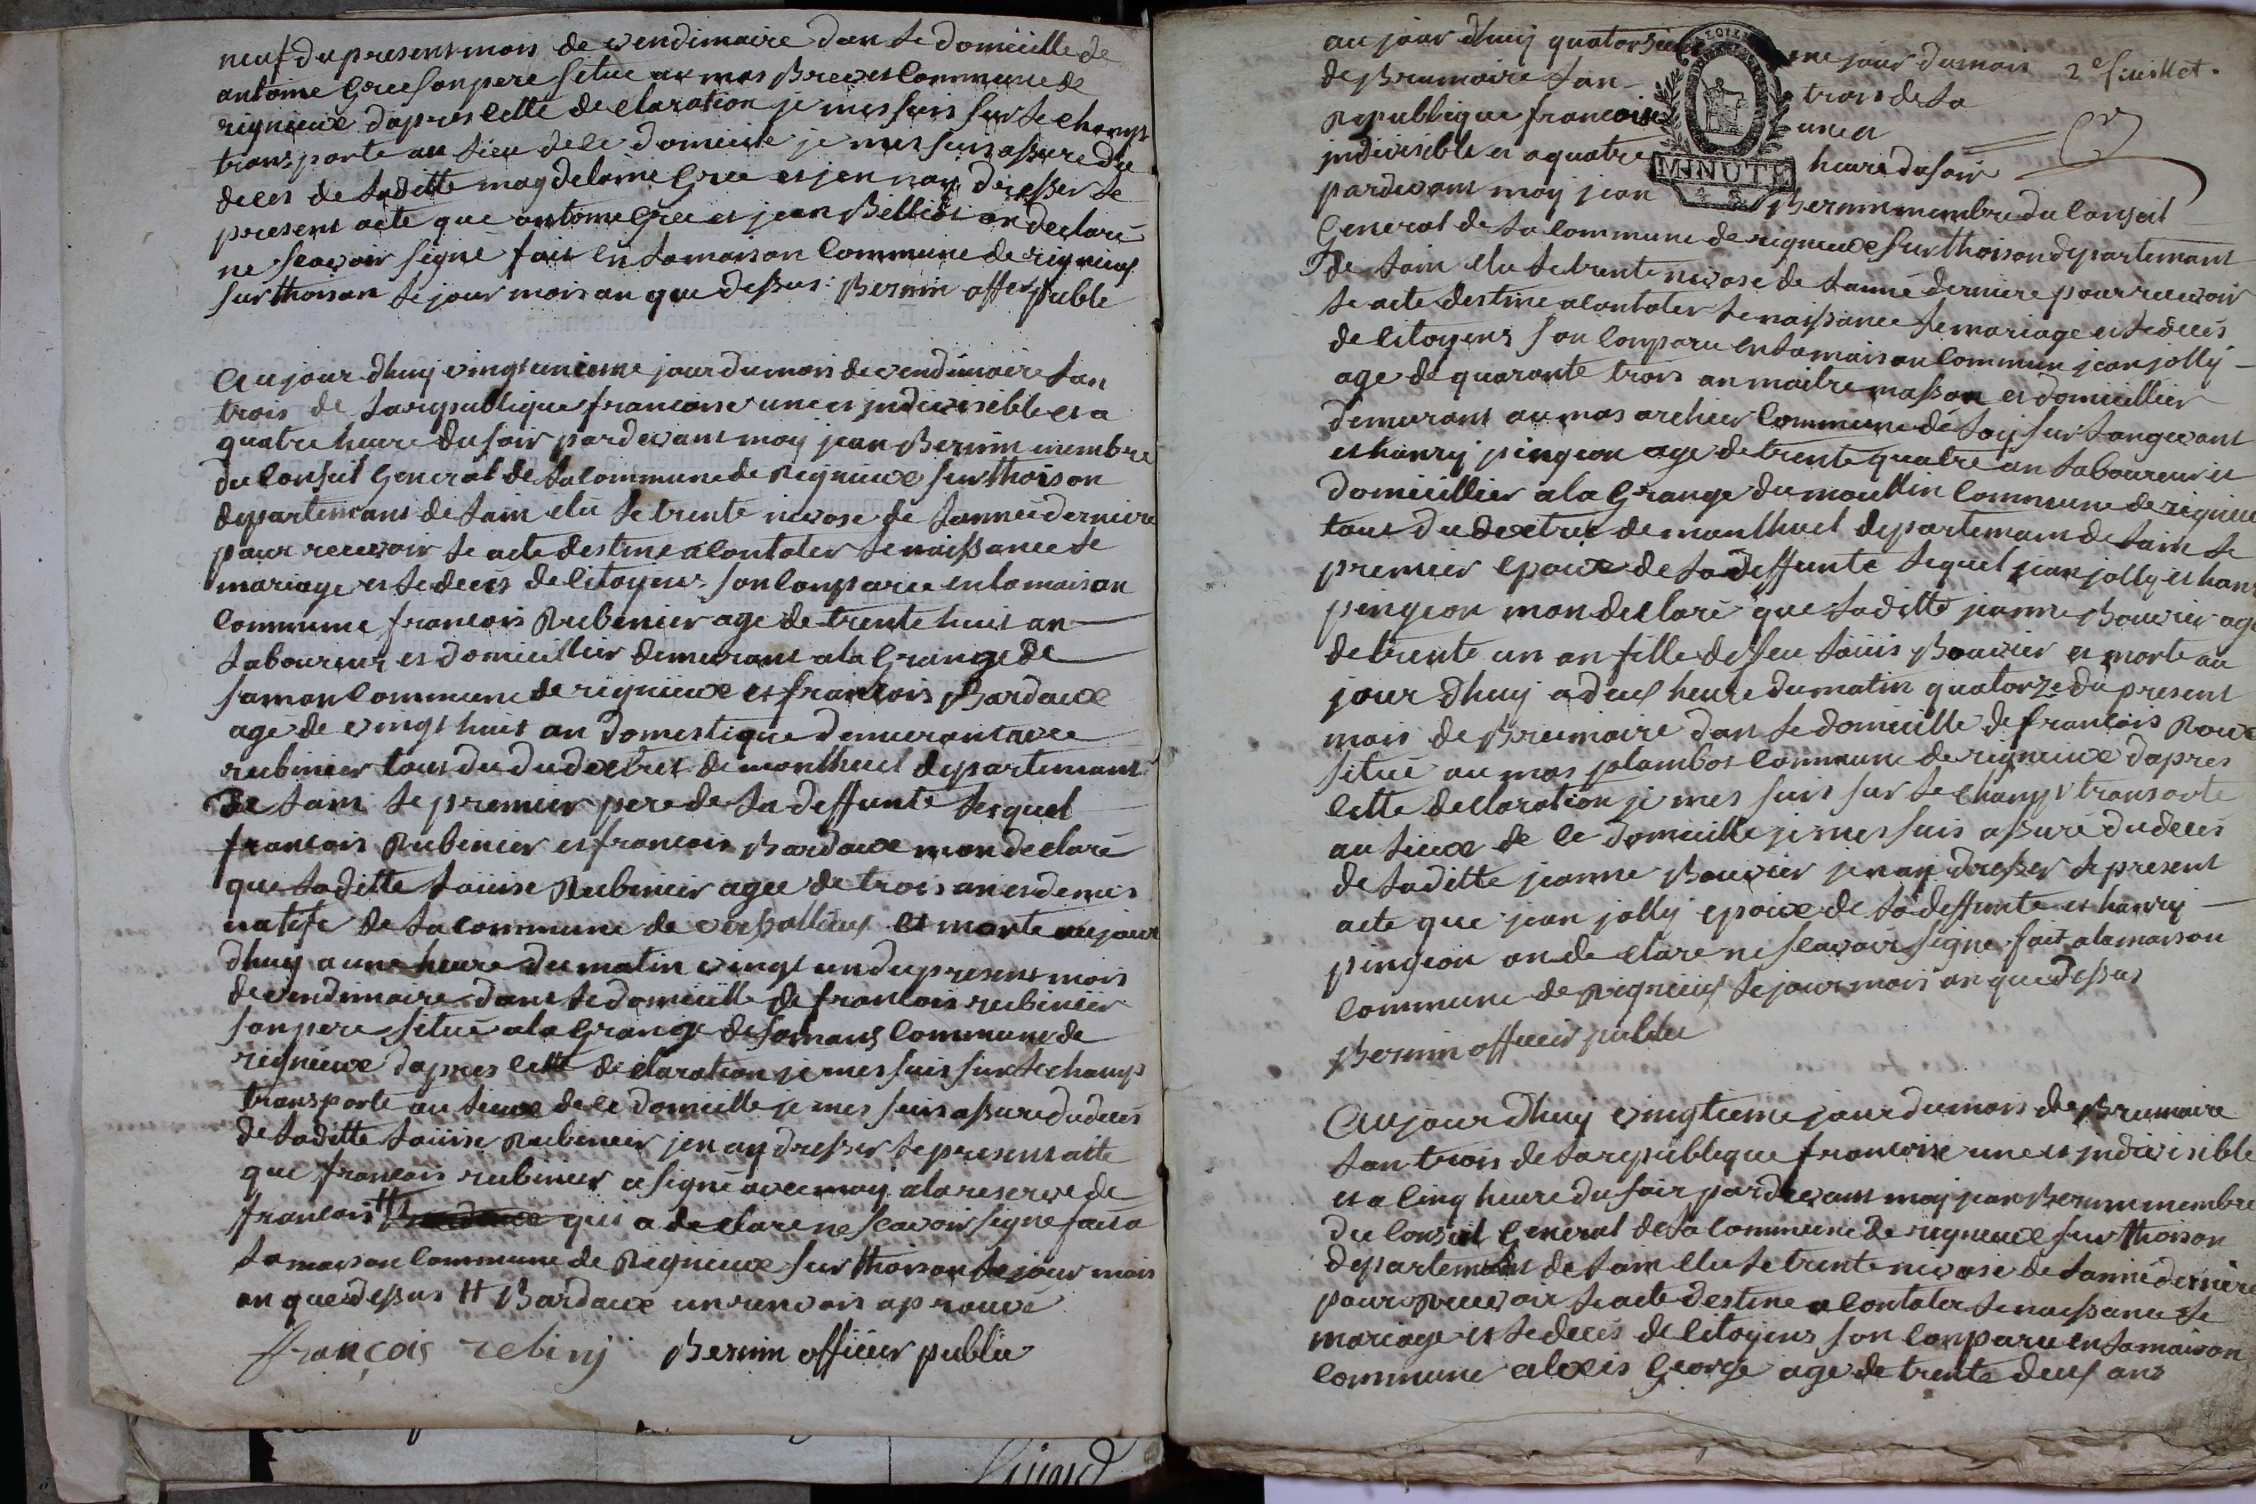 neuf du present mois de vendimaire dan le domicille de
antoine Gree son pere situe au mas Brevet Commune de
rignieux dapres cette declaration je mes suis sur le champt
transporte au lieu de ce domicile je mes suis assure du
deces de laditte magdelaine Gree et jen nay dresser le
present acte que antoine Gree et jean Belliot on declaré
ne scavoir signé fait en la maison Commune de rigneux
sur thoison le jour mois an que dessus : Bernin offer puble
Aujour dhuy vingt unieme jour du mois de vendimaire lan
trois de la republique francoise une et jndivisible et a
quatre heure du soir pardevant moy jean Bernin membre
du Conseil General de la Commune de Rignieux sur thoison
departemant de lain elu le trente nivose de lannee derniere
pour recevoir le acte destine a Contater le naissance le
mariage et le deces de Citoyens son Conparu en la maison
Commune francois Rubinier age de trente huit an
laboureur et domicillier demurant a la Grange de
samon Commune de rignieux et francois Bardoux
age de vingt huit an domestique demurant avec
rubinier tout du du dextrit de montluel departemant
De lain le premier pere de la deffunte lesquel
francois Rubinier et francois Bardoux mon declaré
que laditte Louise Rubinier agee de trois an et demis
natife de la commune de versallieux et morte aujour
dhuy a une heure du matin vingt un du present mois
de vendimaire dans le domicille de francois rubinier
son pere situé a la Grange de samans Commune de
rignieux dapres cette declaration je mes suis sur le champs
transporte au lieux de ce domicille je mes suis assure du deces
de laditte Louise Rubinier jen ay dresser le present acte
que francois rubinier a signé avec moy a la reserve de
francois # qui a declare ne scavoir signe fait a
la maison Commune de Rignieux sur thoison le jour mois
an que dessus # Bardoux un renvois aprouvé
françois rebinj Bernin officier public
2e feuillet.
au jour dhuy quatorzieme jour du mois
de Brumaire lan trois de la
Republique francoise une et
jndivisible et a quatre heure du soir
pardevant moy jean Bernin membre du Conseil
MINUTE
General de la Commune de rignieux sur thoison departemant
de lain elu le trente nivose de lanné derniere pour recevoir
le acte destine a Contater le naissance le mariage et le deces
de Citoyens son Conparu en la maison Commun jean jolly
age de quarante trois an maitre masson et domicillier
demurant au mas archier Commune de
et hanry pingeon age de trente quatre an laboureur et
domicillier a la Grange du moullin Commune de rignieux
tout du dextrit de montluel departemant de lain le
premier epoux de la deffunte lequel jean jolly et hanry
pingeon mon declaré que laditte jeanne Bouvier age
de trente un an fille de feu Louis Bouvier et morte au
jour dhuy a deux heure du matin quatorze du present
mois de Brumaire dans le domicille de francois Roux
situé au mas jolambot Commune de rigneux dapres
cette declaration je mes suis sur le champt transporte
au lieux de ce domicille je mes suis assuré du deces
de laditte jeanne Bouvier jen ay dresser le present
acte que jean jolly epoux de la deffunte et hanry
pingeon on declare ne scavoir signe fait a la maison
commune de Rigneux le jour mois an que dessus
Bernin officier public
Aujour dhuy vingtieme jour du mois de Brumaire
lan trois de la republique francoise une et jndivisible
et a Cinq heure du soir pardevant moy jean Bernin membre
du Conseil General de la Commune de rignieux sur thoison
departemant de lain elu le trente nivose de lanné derniere
pour recevoir le acte destine a Contater le naissance le
mariage et le deces de Citoyens son Conparu en la maison
Commune alexis George age de trente deux ans